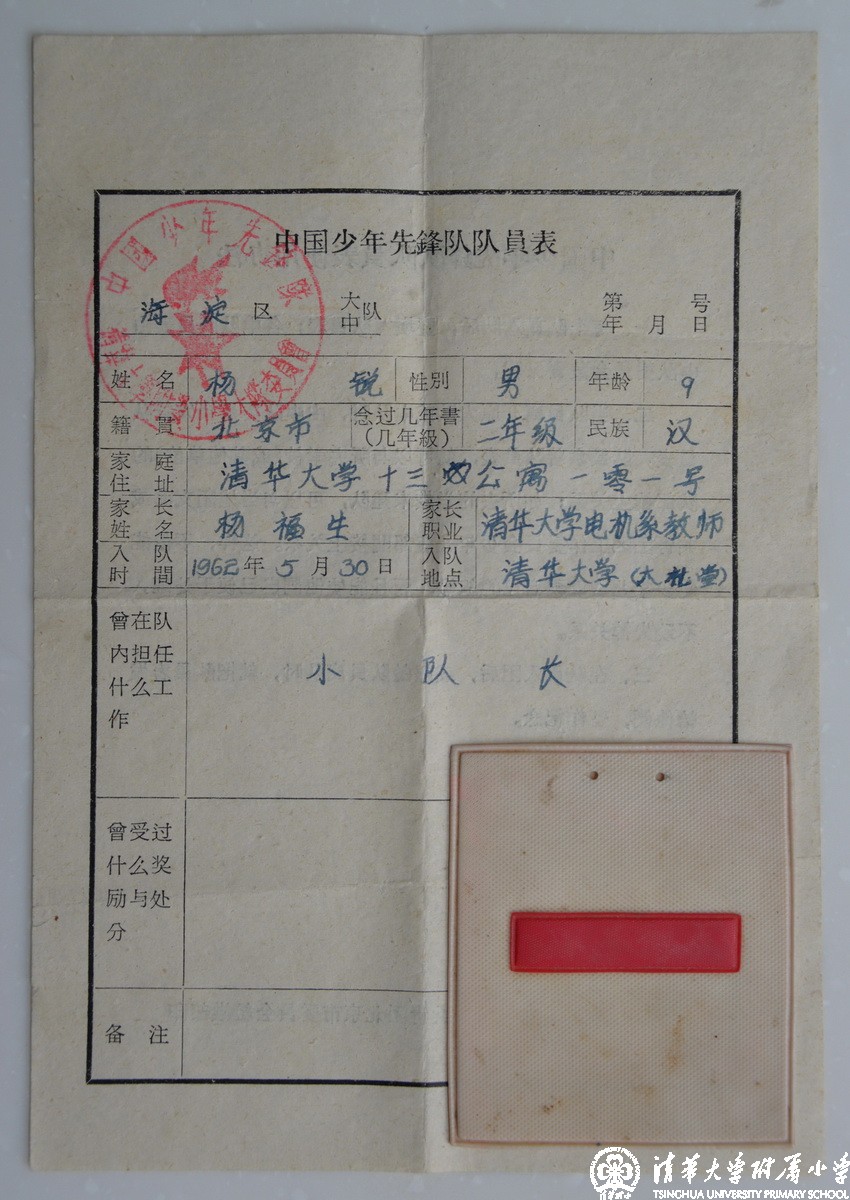 中国少年先鋒队队員表
海淀区 大中队 第 号
年 月 日
姓名 杨锐 性別 男 年龄 9
籍貫 北京市 念过几年書(几年級) 二年级 民族 汉
家庭住址 清华大学十三公寓一零一号
家长姓名 杨福生 家长职业 清华大学电机系教师
入队时間 1962年5月30日 入队地点 清华大学(大礼堂)
曾在队内担任什么工作 小队长
曾受过什么奖励与处分
备注
中國少年先鋒隊
清华大学附属小学
TSINGHUA UNIVERSITY PRIMARY SCHOOL